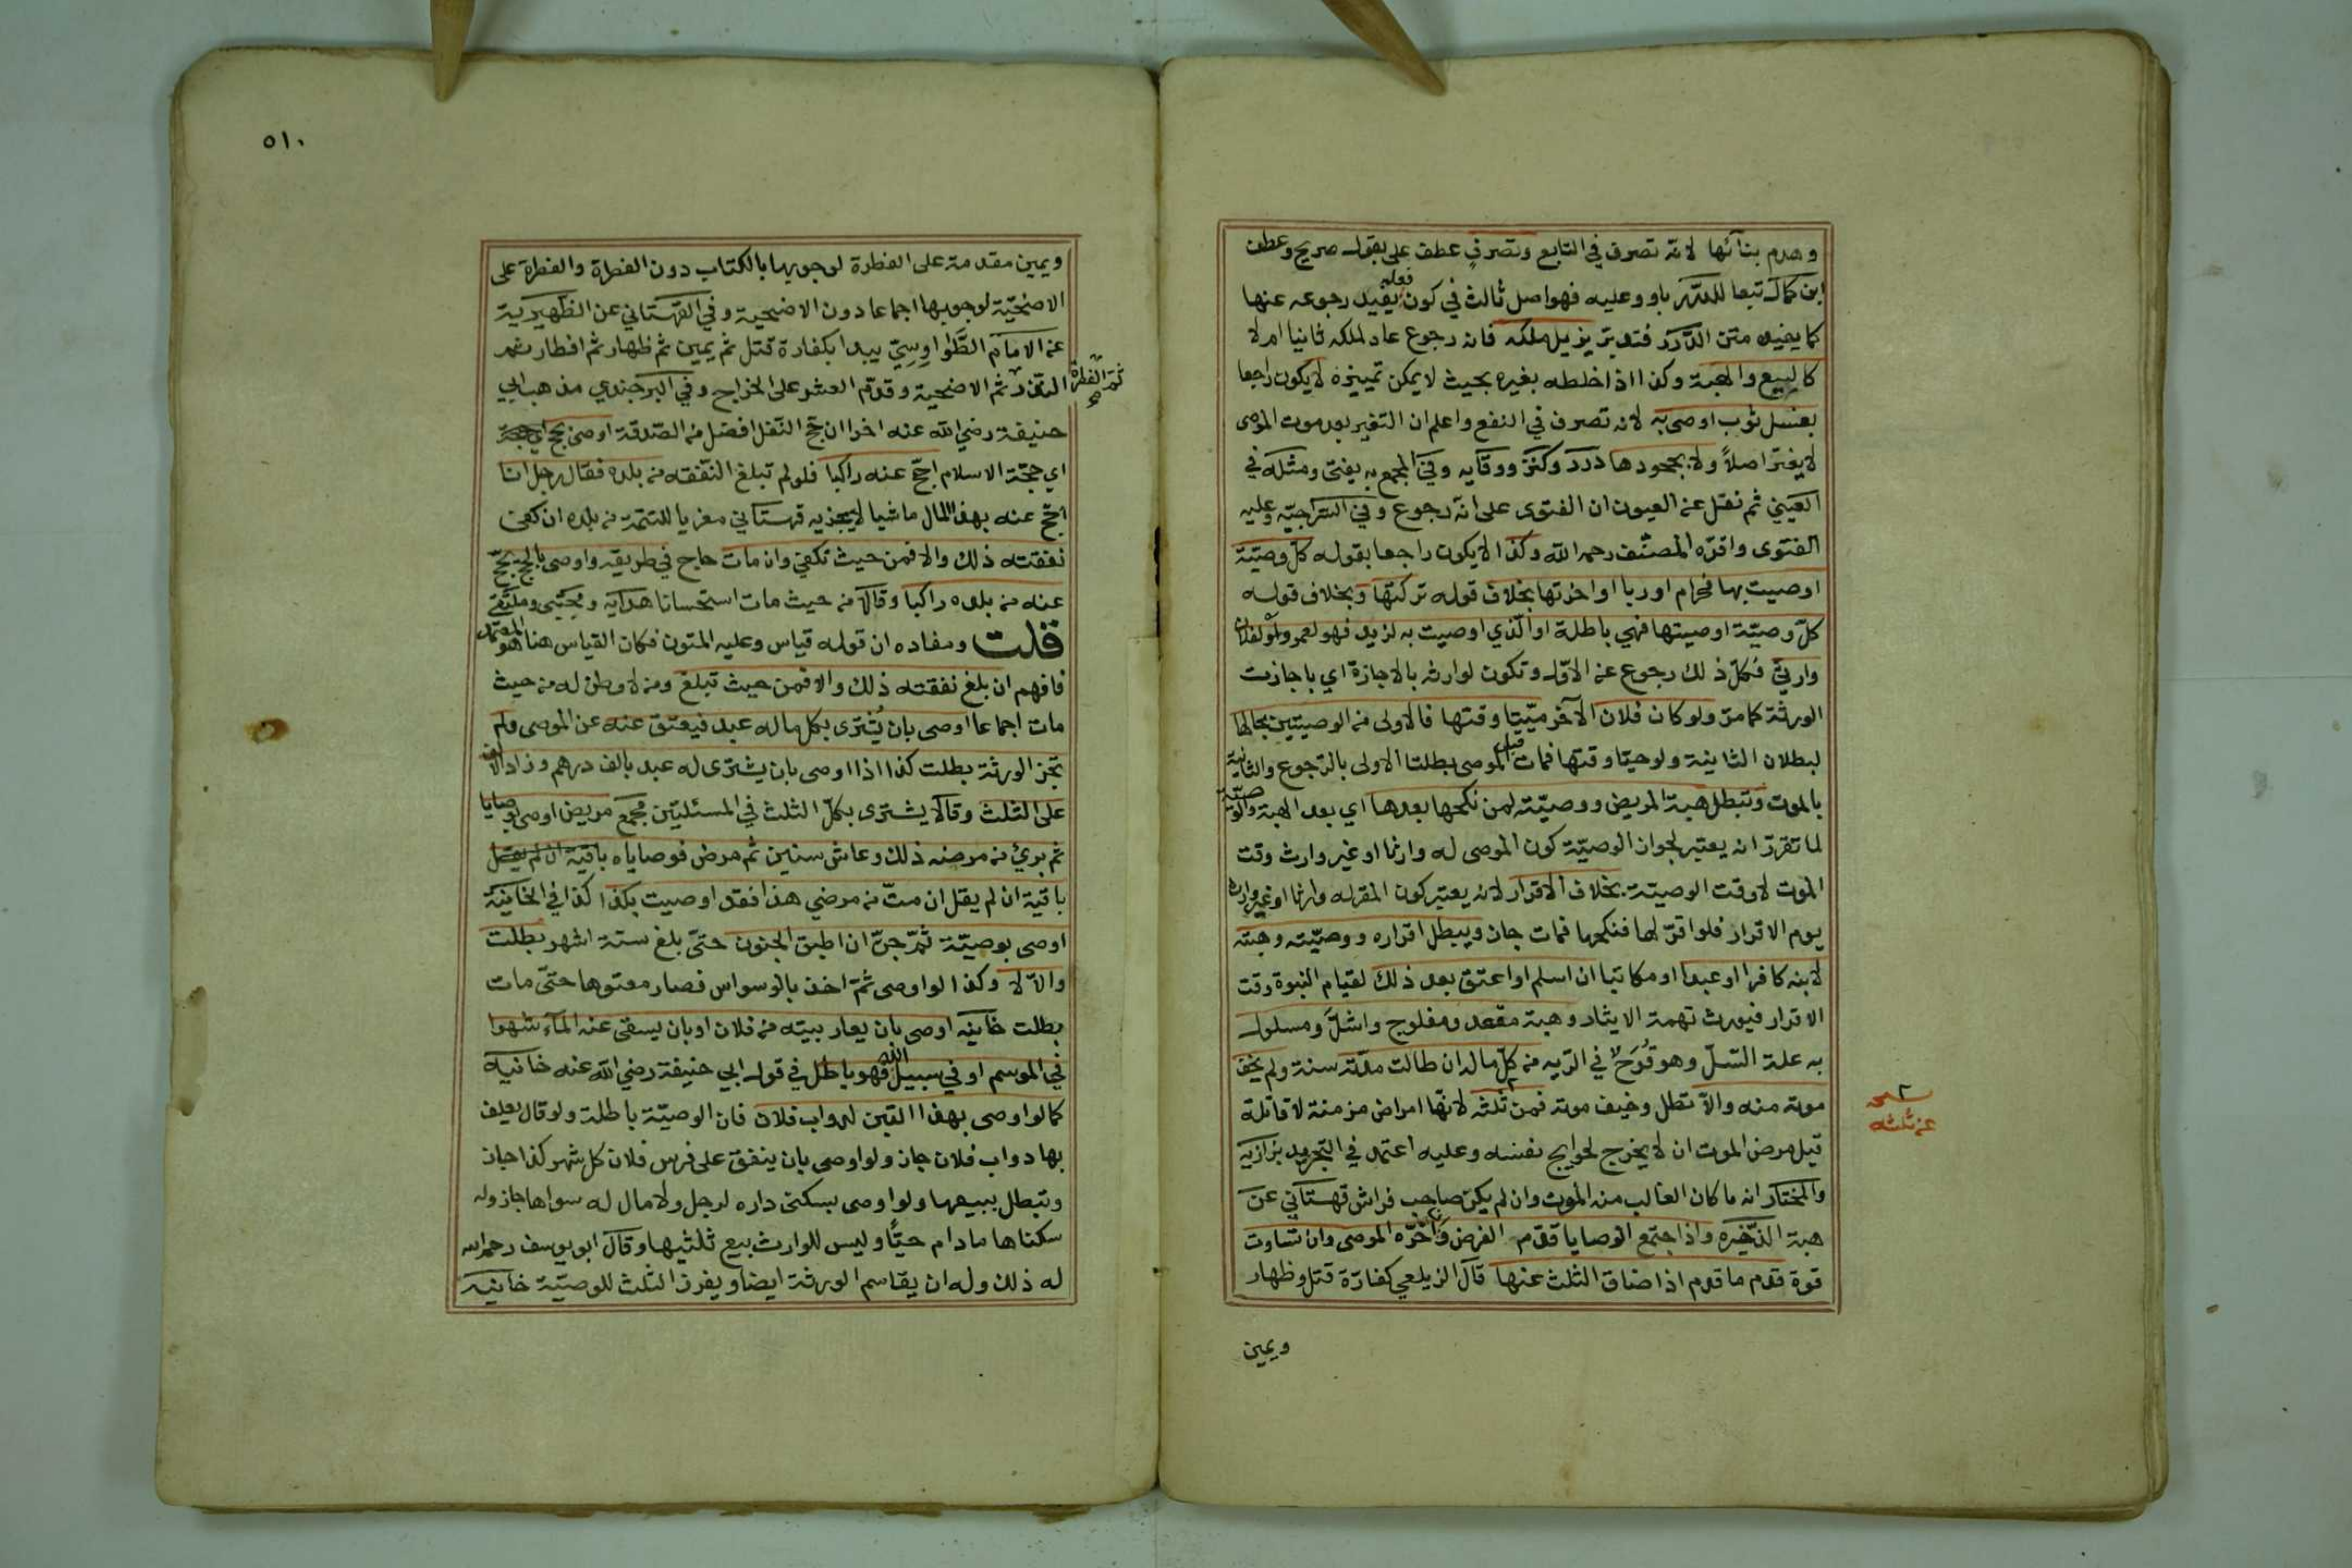 وهدم بنائها لانه تصرف في التابع وتصرف عطف على بقول صريح وعطف
ابن كمال تبعا للدرر باو وعليه فهو اصل ثالث في كون فعله يفيد رجوعه عنها
كما يفيده متن الدرر فتدبر يزيل ملكه فانه رجوع عاد لملكه ثانيا ام لا
كالبيع والهبة وكذا اذا خلطه بغيره بحيث لا يمكن تمييزه لا يكون راجعا
بغسل ثوب اوصى به لانه تصرف في النفع واعلم ان التغير بعد موت الموصى
لا يغير اصلا ولا بجحودها درر وكنز ووقايه وفي المجمع به يفتى ومثله في
العيني ثم نقل عن العيون ان الفتوى على انه رجوع وفي السراجيه وعليه
الفتوى واقره المصنف رحمه الله وكذا لا يكون راجعا بقوله كل وصية
اوصيت بها فحرام او ربا او اخرتها بخلاف قوله تركتها وبخلاف قوله
كل وصية اوصيتها فهي باطلة او الذي اوصيت به لزيد فهو لعمرو او لفلان
وارثي فكل ذلك رجوع عن الاول وتكون لوارثه بالاجازة اي باجازت
الورثة كما مر ولو كان فلان الآخر ميتا وقتها فالاولى من الوصيتين بحالها
لبطلان الثانية ولو حيا وقتها فمات قبل الموصى بطلتا الاولى بالرجوع والثانية
بالموت وتبطل هبة المريض ووصيته لمن نكحها بعدها اي بعد الهبة والوصية
لما تقرر انه يعتبر لجواز الوصية كون الموصى له وارثا او غير وارث وقت
الموت لا وقت الوصية بخلاف الاقرار لانه يعتبر كون المقر له وارثا او غير وارث
يوم الاقرار فلو اقر لها فنكحها فمات جاز ويبطل اقراره ووصيته وهبته
لابنه كافرا او عبدا او مكاتبا ان اسلم او اعتق بعد ذلك لقيام البنوة وقت
الاقرار فيورث تهمة الايثار وهبة مقعد ومفلوج واشل ومسلول
به علة السل وهو قرح في الريه من كل ماله ان طالت مدته سنة ولم يخف
موته منه والا تطل وخيف موته فمن ثلثه لانها امراض مزمنة لا قاتلة
قيل مرض الموت ان لا يخرج لحوايج نفسه وعليه اعتمد في التجريد بزازيه
والمختار انه ما كان الغالب منه الموت وان لم يكن صاحب فراش قهستاني عن
هبة الذخيره واذا اجتمع الوصايا قدم الفرض وان اخره الموصى وان تساوت
قوة قدم ما قدم اذا ضاق الثلث عنها قال الزيلعي كفارة قتل وظهار
ويمين
عن ثلثه
٥١٠
ويمين مقدمة على الفطرة لوجوبها بالكتاب دون الفطرة والفطرة على
الاضحية لوجوبها اجماعا دون الاضحية وفي القهستاني عن الظهيرية
عن الامام الطواويسي يبدا بكفارة قتل ثم يمين ثم ظهار ثم افطار ثم
النذر ثم الفطرة ثم الاضحية وقدم العشر على الخراج وفي البرجندي مذهب ابي
حنيفة رضي الله عنه اخرا ان حج النفل افضل من الصدقة اوصى بحج
اي حجة الاسلام احج عنه راكبا فلو لم تبلغ النفقه من بلده فقال رجل انا
احج عنه بهذا المال ماشيا لا يجزيه قهستاني معزيا للتتمة من بلده ان كفى
نفقته ذلك والا فمن حيث تكفي وان مات حاج في طريقه واوصى بالحج يحج
عنه من بلده راكبا وقالا من حيث مات استحسانا هدايه ومجتبى وملتقى
قلت ومفاده ان قوله قياس وعليه المتون فكان القياس هنا هو المعتمد
فافهم ان بلغ نفقته ذلك والا فمن حيث تبلغ ومن لا وطن له من حيث
مات اجماعا اوصى بان يشترى بكل ماله عبد فيعتق عنه عن الموصى ولم
تجز الورثة بطلت كذا اذا اوصى بان يشترى له عبد بالف درهم وزاد الالف
على الثلث وقالا يشترى بكل الثلث في المسئلتين مجمع مريض اوصى بوصايا
ثم برئ من مرضه ذلك وعاش سنين ثم مرض فوصاياه باقية ان لم يقل
باقية ان لم يقل ان مت من مرضي هذا فقد اوصيت بكذا كذا في الخانية
اوصى بوصية ثم جن ان اطبق الجنون حتى بلغ ستة اشهر بطلت
والا لا وكذا لو اوصى ثم اخذ بالوسواس فصار معتوها حتى مات
بطلت خانيه اوصى بان يعار بيته من فلان او بان يسقى عنه الماء شهرا
في الموسم او في سبيل الله فهو باطل في قول ابي حنيفة رضي الله عنه خانيه
كما لو اوصى بهذا التبن لدواب فلان فان الوصية باطلة ولو قال يعلف
بها دواب فلان جاز ولو اوصى بان ينفق على فرس فلان كل شهر كذا جاز
وتبطل ببيعها ولو اوصى بسكنى داره لرجل ولا مال له سواها جاز وله
سكناها ما دام حيا وليس للوارث بيع ثلثيها وقال ابو يوسف رحمه الله
له ذلك وله ان يقاسم الورثة ايضا ويفرز الثلث للوصية خانيه